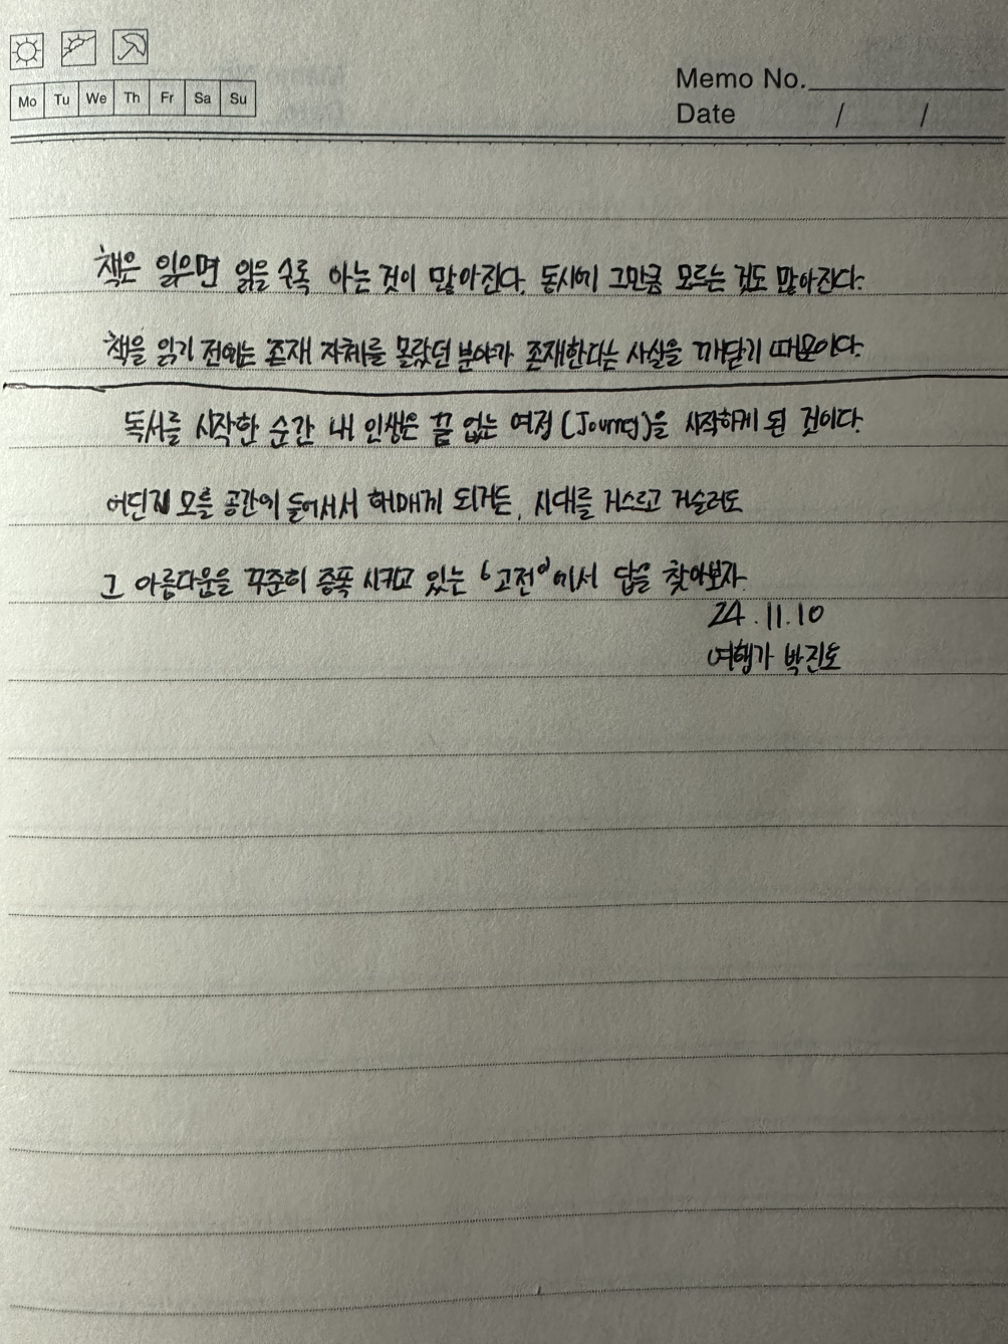 Memo No.
Mo Tu We Th Fr Sa Su
Date / /
책은 읽으면 읽을 수록 아는 것이 많아진다. 동시에 그만큼 모르는 것도 많아진다.
책을 읽기 전에는 존재 자체를 몰랐던 분야가 존재한다는 사실을 깨닫기 때문이다.
독서를 시작한 순간 내 인생은 끝 없는 여정 (Journey)을 시작하게 된 것이다.
어딘지 모를 공간에 들어서서 헤매게 되거든, 시대를 거스르고 거슬러도
그 아름다움을 꾸준히 증폭 시키고 있는 '고전'에서 답을 찾아보자.
24.11.10
여행가 박진토